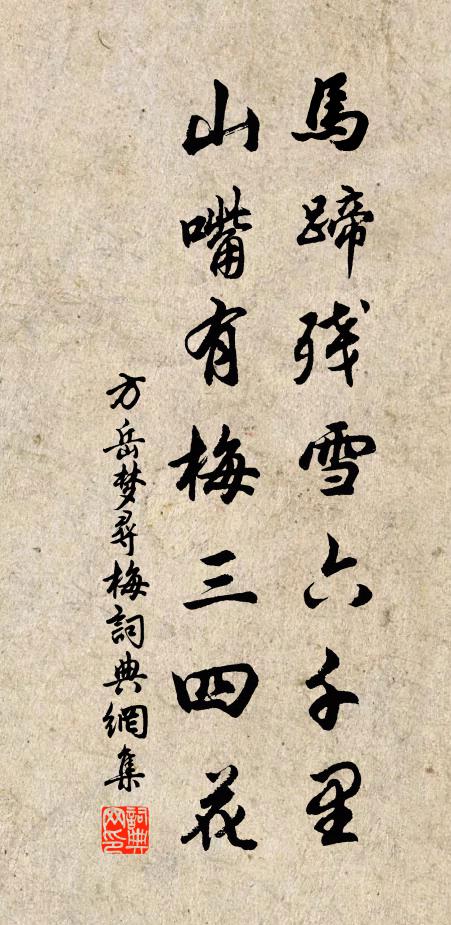 馬蹄残雪六千里
山嘴有梅三四花
方岳梦尋梅詞典網集
詞典网印